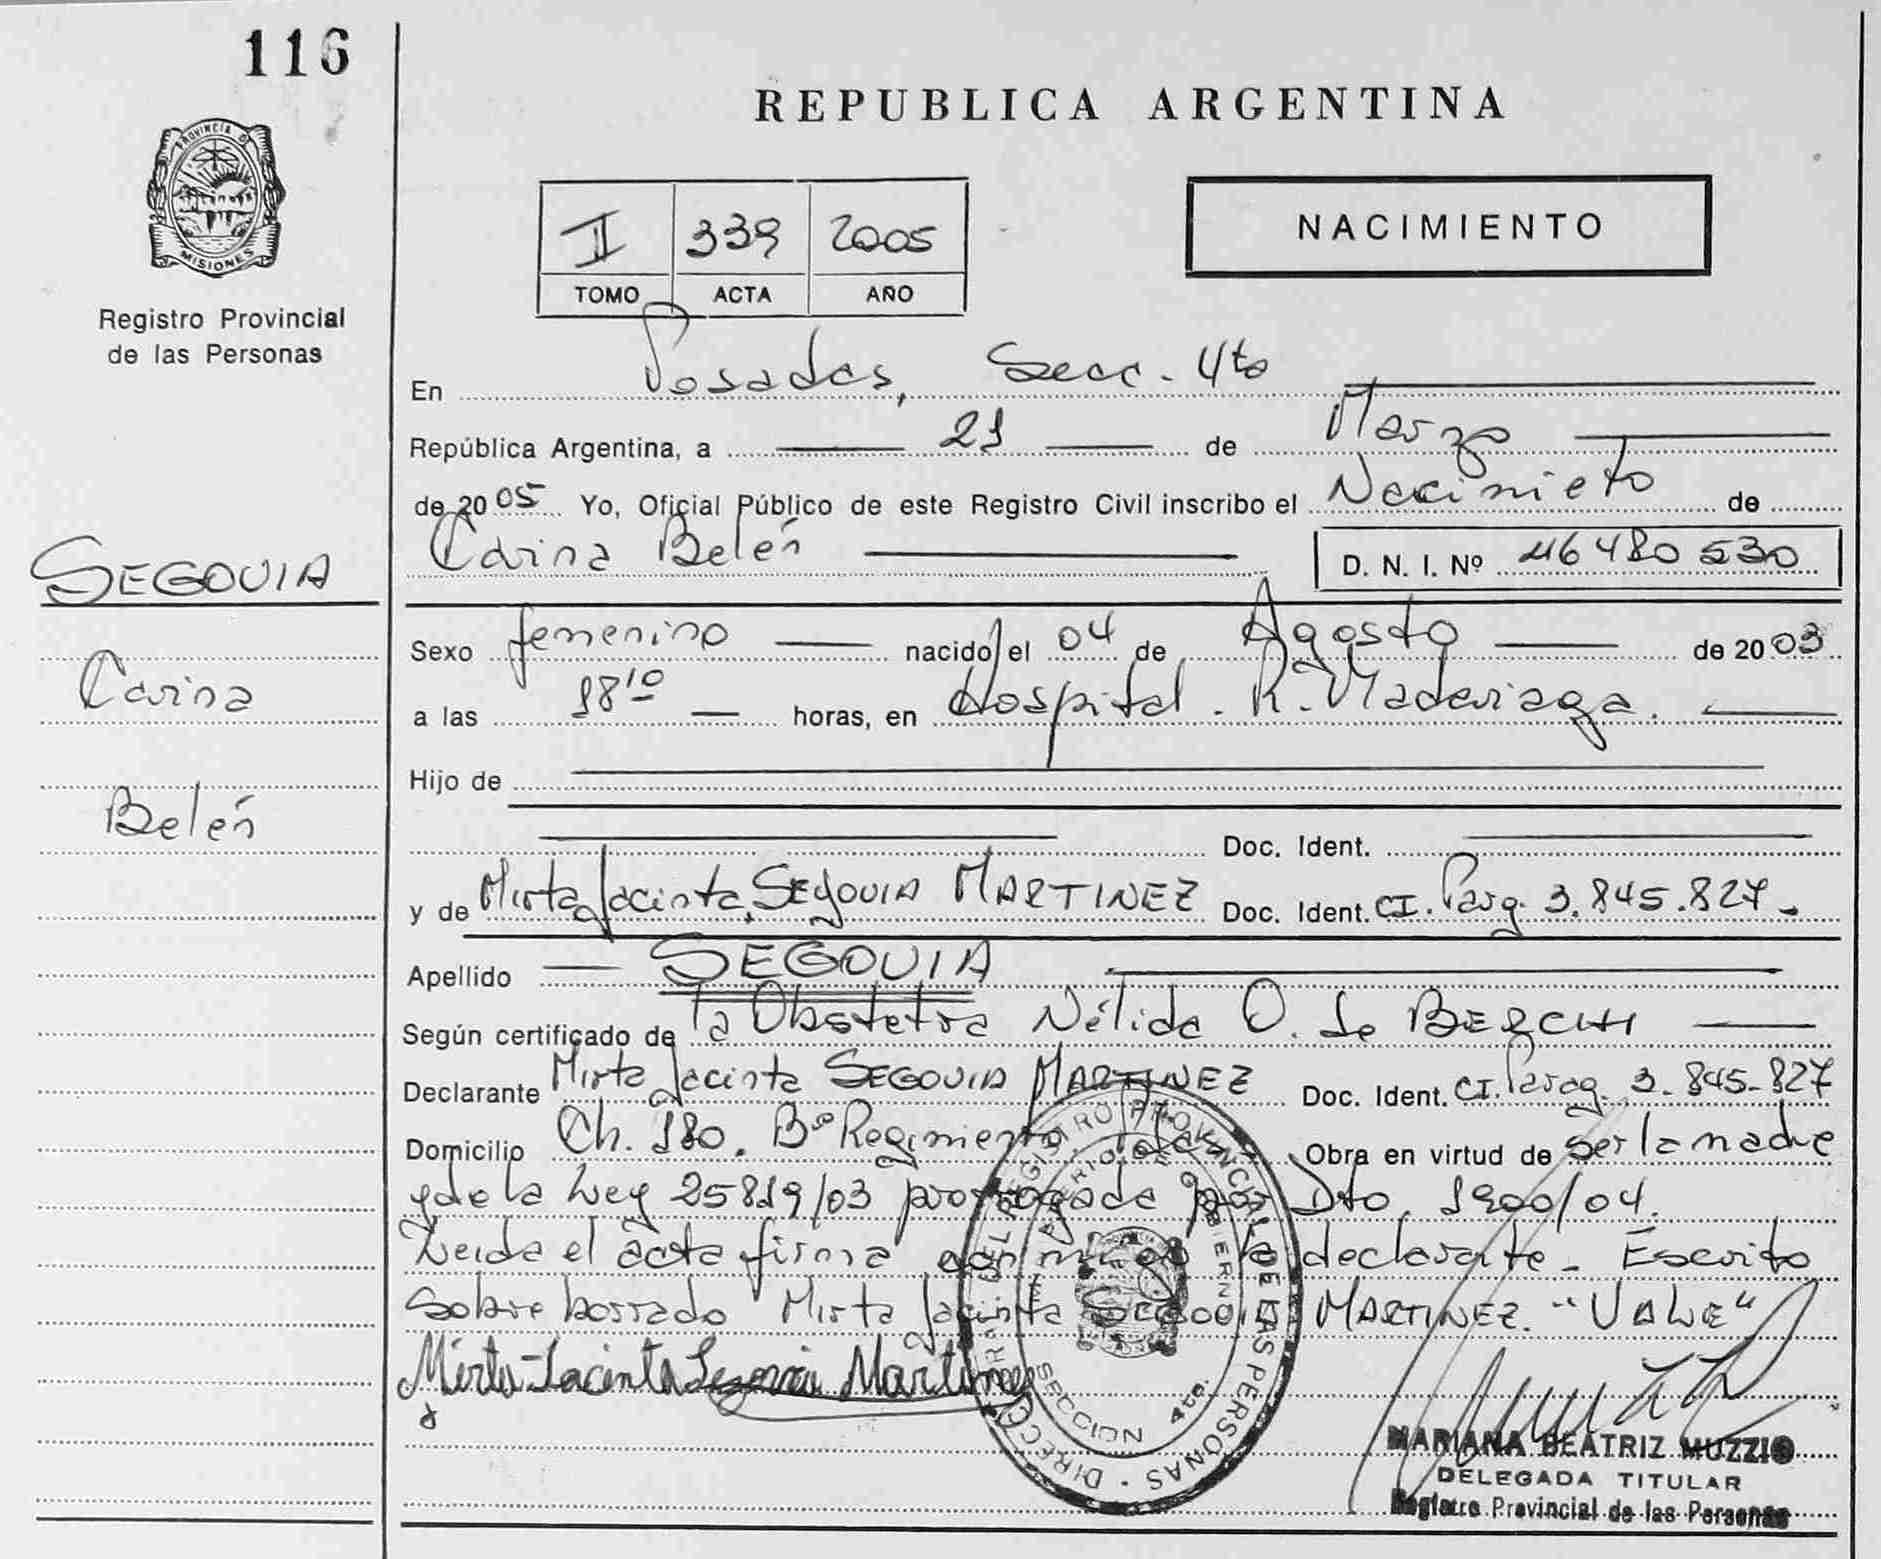 116
REPUBLICA ARGENTINA
PROVINCIA D
MISIONES
Registro Provincial
de las Personas
II 339 2005
TOMO ACTA AÑO
NACIMIENTO
En Posadas, Secc. 4to
República Argentina, a 21 de Marzo
de 2005 Yo, Oficial Público de este Registro Civil inscribo el Nacimieto de
Carina Belén D. N. I. Nº 46 480 530
SEGOVIA
Carina
Belén
Sexo femenino nacido el 04 de Agosto de 2003
a las 18 10 horas, en Hospital. R. Madariaga.
Hijo de
Doc. Ident.
y de Mirta Jacinta SEGOVIA MARTINEZ Doc. Ident. CI. Parg. 3.845.827.
Apellido SEGOVIA
Según certificado de la Obstetra Nélida O. de BERCHI
Declarante Mirta Jacinta SEGOVIA MARTINEZ Doc. Ident. CI. Parag. 3.845.827
Domicilio Ch. 180. Bº Regimiento Obra en virtud de ser la madre
y de la Ley 25819/03 prorrogada por Dto. 1900/04.
Leida el acta firma conmigo la declarante. Escrito
sobre borrado Mirta Jacinta Segovia MARTINEZ. "VALE"
Mirta Jacinta Segovia Martinez
DIRECCION GRAL. DEL REGISTRO PROVINCIAL DE LAS PERSONAS
MINISTERIO DE GOBIERNO
SECCION 4ta.
MARIANA BEATRIZ MUZZIO
DELEGADA TITULAR
Registro Provincial de las Personas